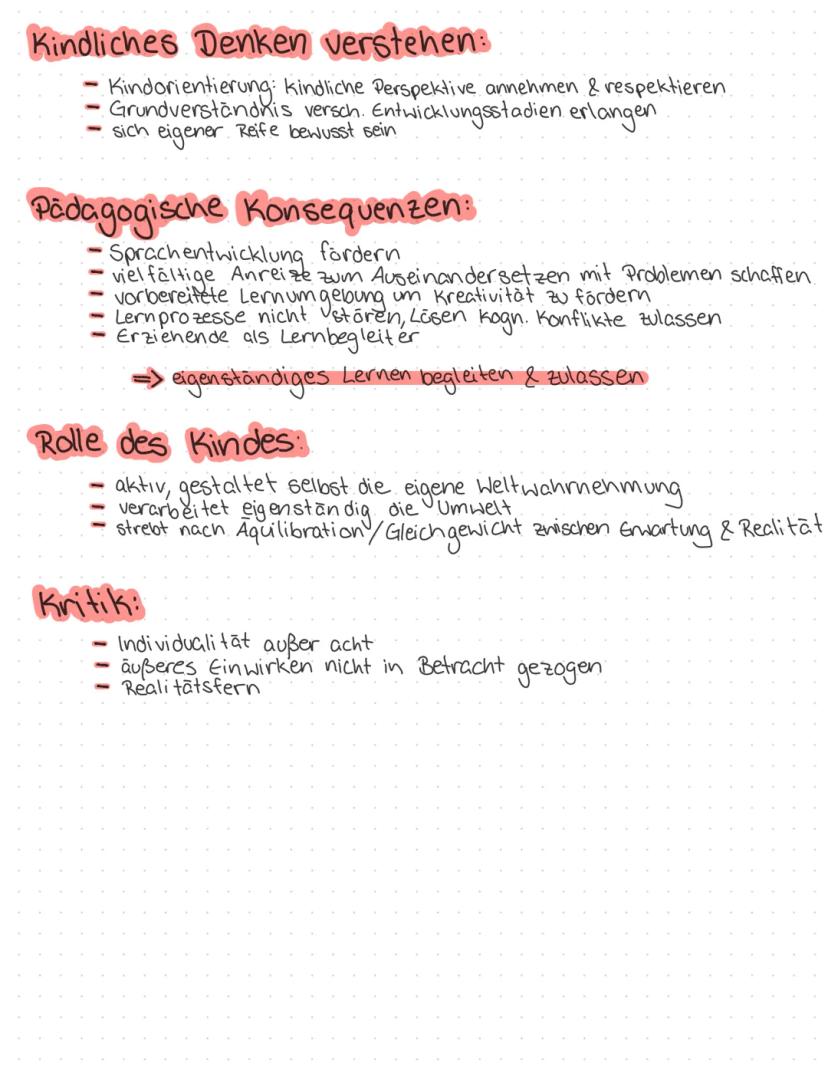 Kindliches Denken verstehen:
- Kindorientierung: Kindliche Perspektive annehmen & respektieren
- Grundverständnis versch. Entwicklungsstadien erlangen
- sich eigener Reife bewusst sein
Pädagogische Konsequenzen:
- Sprachentwicklung fördern
- vielfältige Anreize zum Auseinandersetzen mit Problemen schaffen
- vorbereitete Lernumgebung um Kreativität zu fördern
- Lernprozesse nicht stören, Lösen kogn. Konflikte zulassen
- Erziehende als Lernbegleiter
=> eigenständiges Lernen begleiten & zulassen
Rolle des Kindes:
- aktiv, gestaltet selbst die eigene Weltwahrnehmung
- verarbeitet eigenständig die Umwelt
- strebt nach Äquilibration/Gleichgewicht zwischen Erwartung & Realität
Kritik:
- Individualität außer acht
- äußeres Einwirken nicht in Betracht gezogen
- Realitätsfern